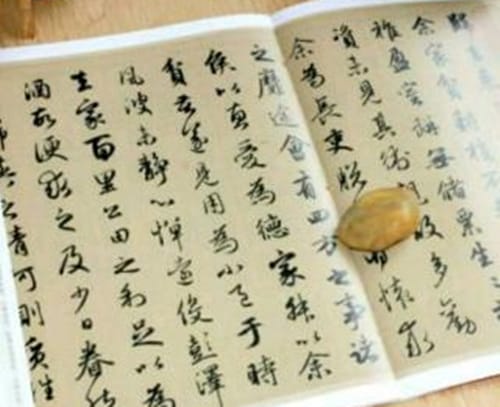 余家貧耕植不
稚盈室缾無儲粟生
資未見其術親故多勸
余為長吏脫懷求
之靡途會有四方之事諸
侯以惠愛為德家叔以余
貧苦遂見用為小邑于時
風波未靜心憚遠役彭澤
去家百里公田之利足以為
酒故便求之及少日眷然
歟之情何則質性